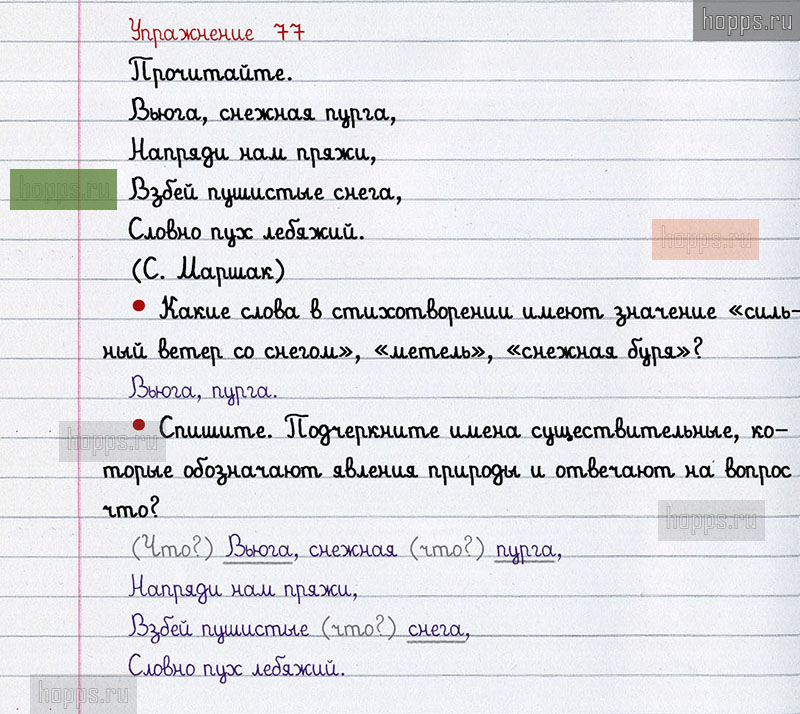 hopps.ru
Упражнение 77
Прочитайте.
Вьюга, снежная пурга,
Напряди нам пряжи,
hopps.ru
Взбей пушистые снега,
Словно пух лебяжий.
hopps.ru
(С. Маршак)
• Какие слова в стихотворении имеют значение «силь-
ный ветер со снегом», «метель», «снежная буря»?
Вьюга, пурга.
hopps.ru
• Спишите. Подчеркните имена существительные, ко-
торые обозначают явления природы и отвечают на вопрос
что?
hopps.ru
(Что?) Вьюга, снежная (что?) пурга,
Напряди нам пряжи,
Взбей пушистые (что?) снега,
Словно пух лебяжий.
hopps.ru